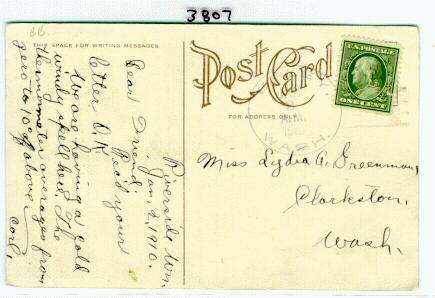 3807
BB
THIS SPACE FOR WRITING MESSAGES
Post Card
FOR ADDRESS ONLY
U.S. POSTAGE
ONE CENT
A.M.
WASH.
Riverside, Wn.
Jan. 2, 1910.
Dear Friend;
Rec'd your
letter O.K.
We are having a cold
windy spell here. The
thermometer averages from
zero to 10 above.
Miss Lydia A. Greenman,
Clarkston,
Wash.